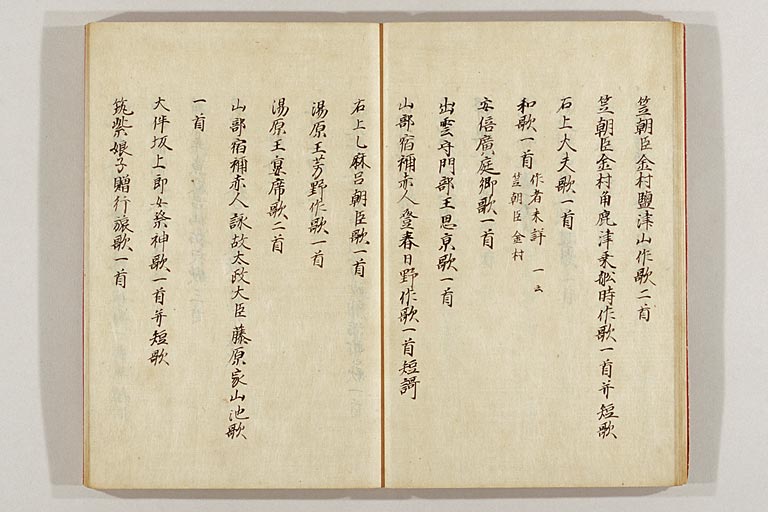 笠朝臣金村塩津山作歌二首
笠朝臣金村角鹿津乗船時作歌一首并短歌
石上大夫歌一首
和歌一首 作者未詳 一云
笠朝臣金村
安倍廣庭卿歌一首
出雲守門部王思京歌一首
山部宿祢赤人登春日野作歌一首短謌
石上乙麻呂朝臣歌一首
湯原王芳野作歌一首
湯原王宴席歌二首
山部宿祢赤人詠故太政大臣藤原家山池歌
一首
大伴坂上郎女祭神歌一首并短歌
筑紫娘子贈行旅歌一首